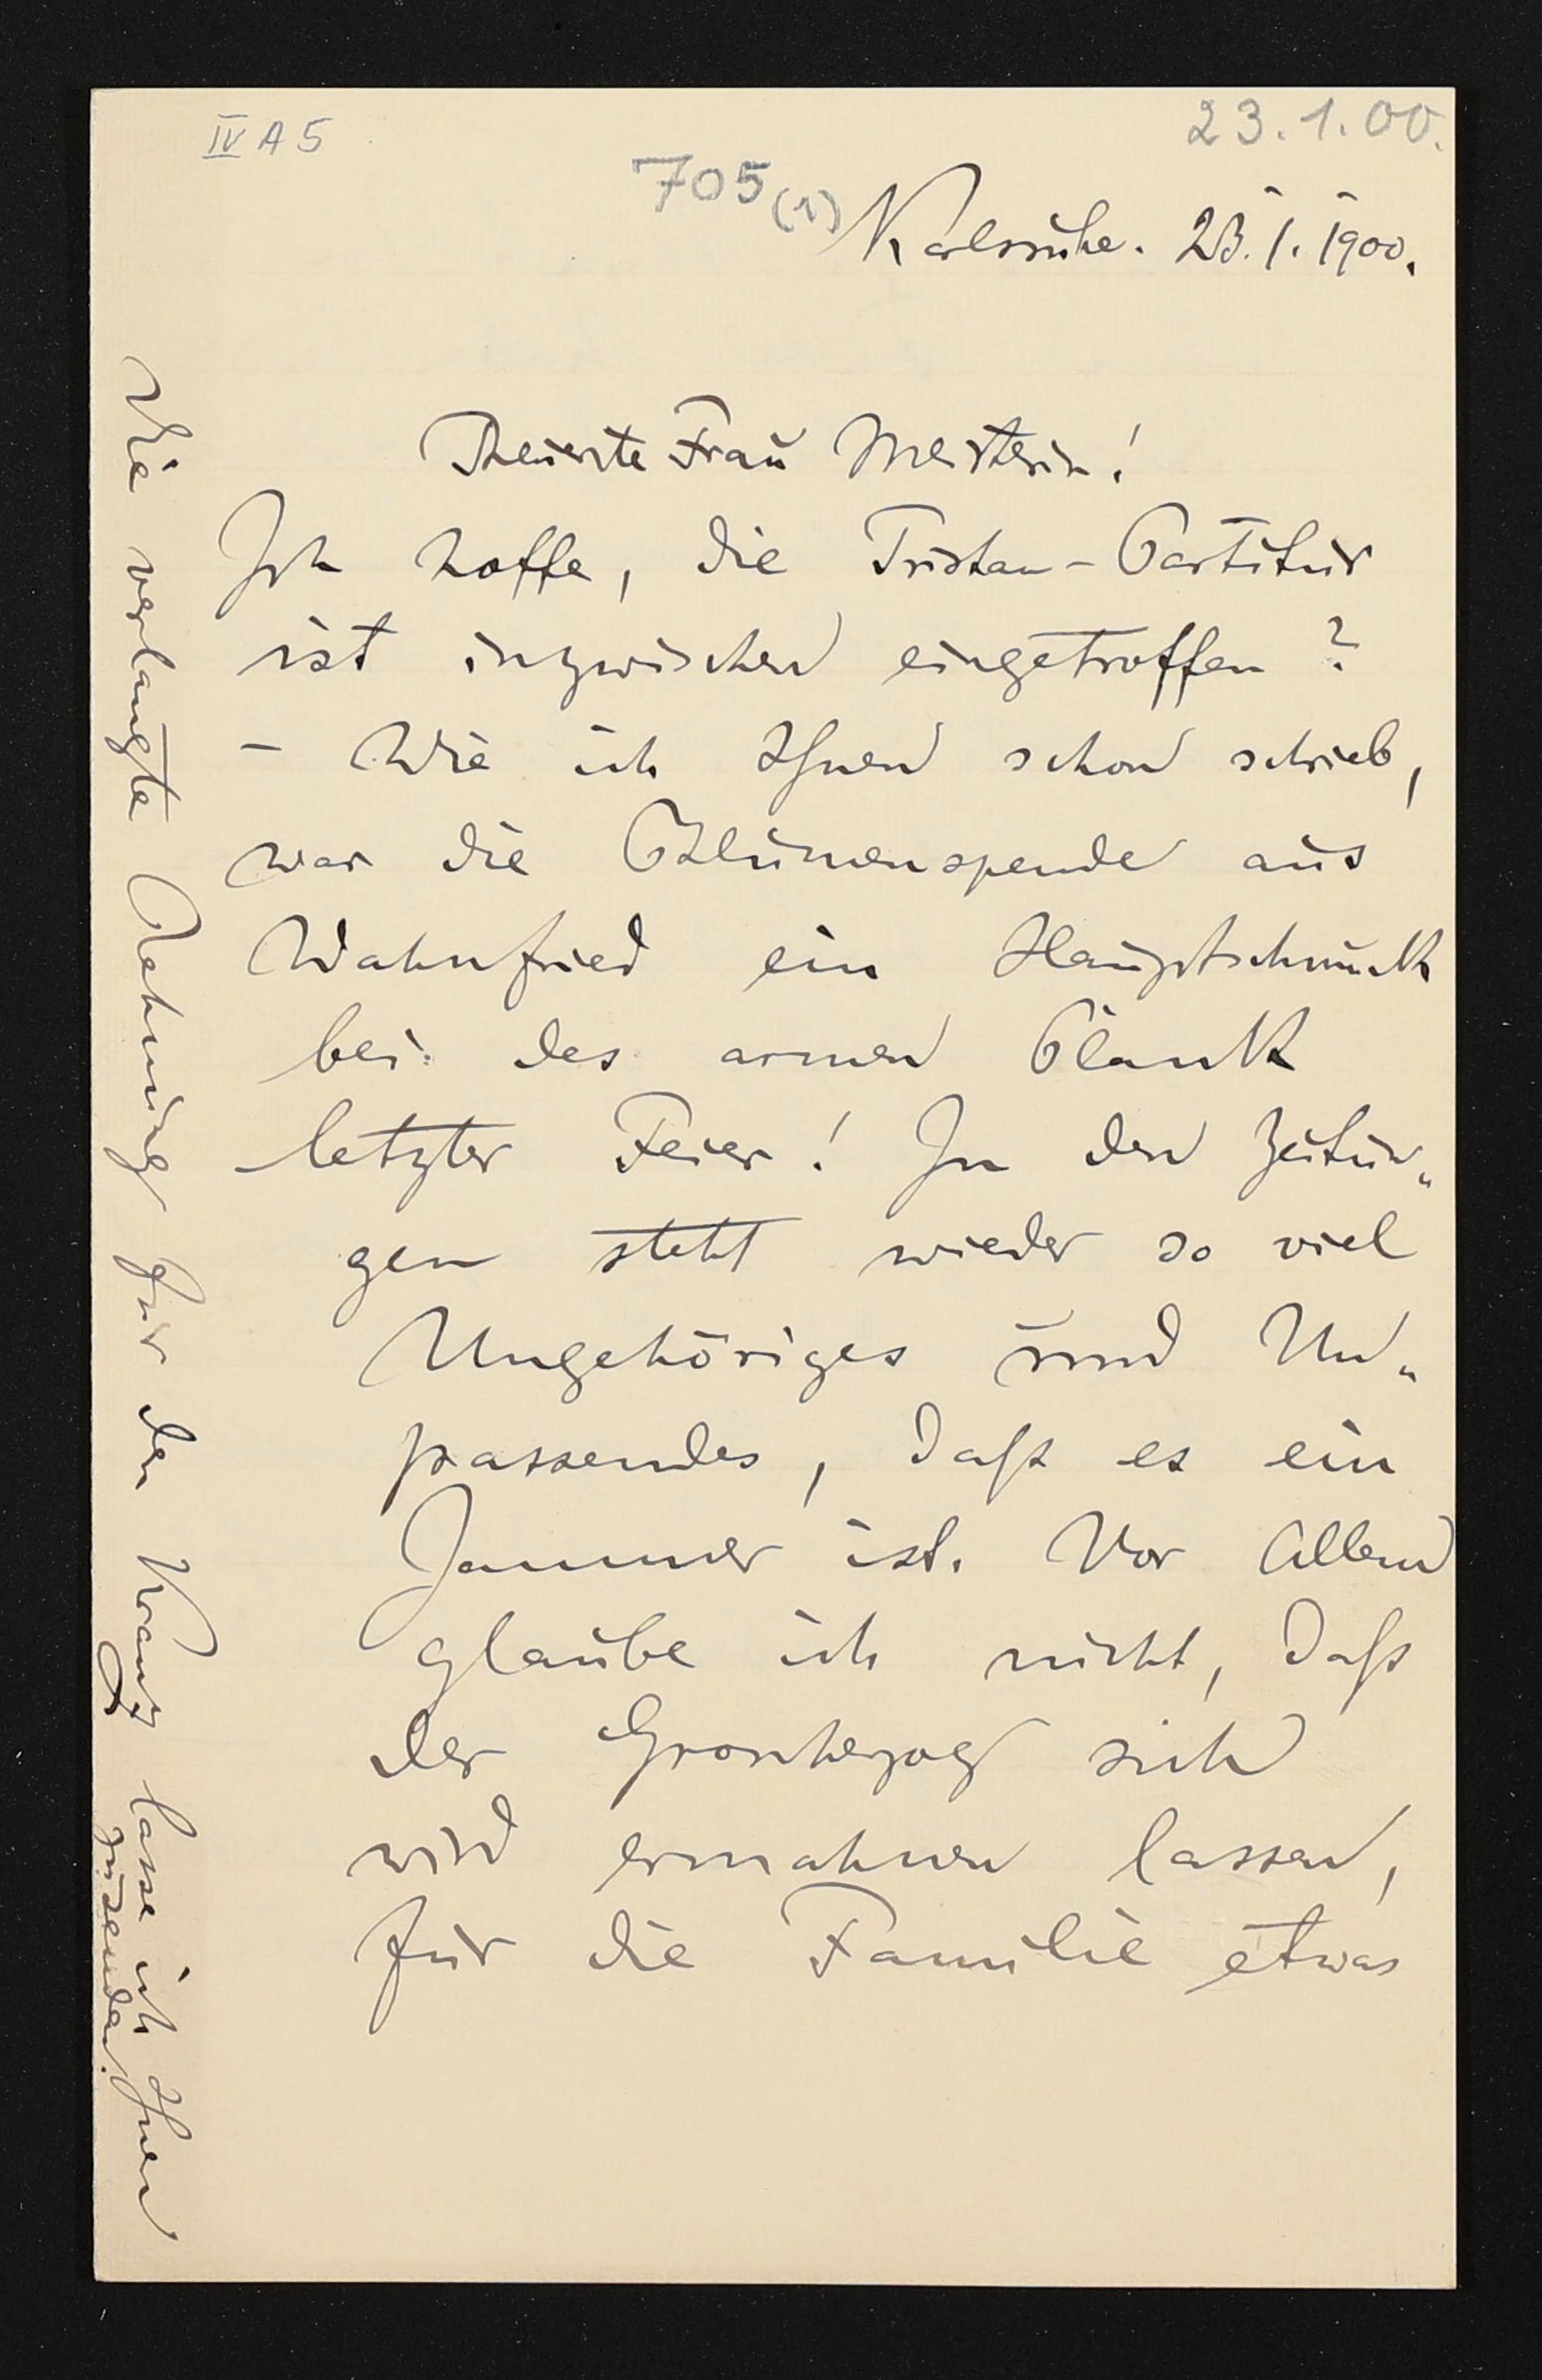 IV A 5
23.1.00.
705 (1)
Karlsruhe. 23.1.1900.
Theuerste Frau Meisterin!
Ich hoffe, die Tristan-Partitur
ist inzwischen eingetroffen?
- Wie ich Ihnen schon schrieb,
war die Blumenspende aus
Wahnfried ein Hauptschmuck
bei des armen Plank
letzter Feier! In den Zeitun„
gen steht wieder so viel
Ungehöriges und Un„
passendes, daß es ein
Jammer ist. Vor Allem
glaube ich nicht, daß
der Grossherzog sich
wird ermahnen lassen,
für die Familie etwas
Die verlangte Rechnung für den Kranz lasse ich Ihnen
zusenden.